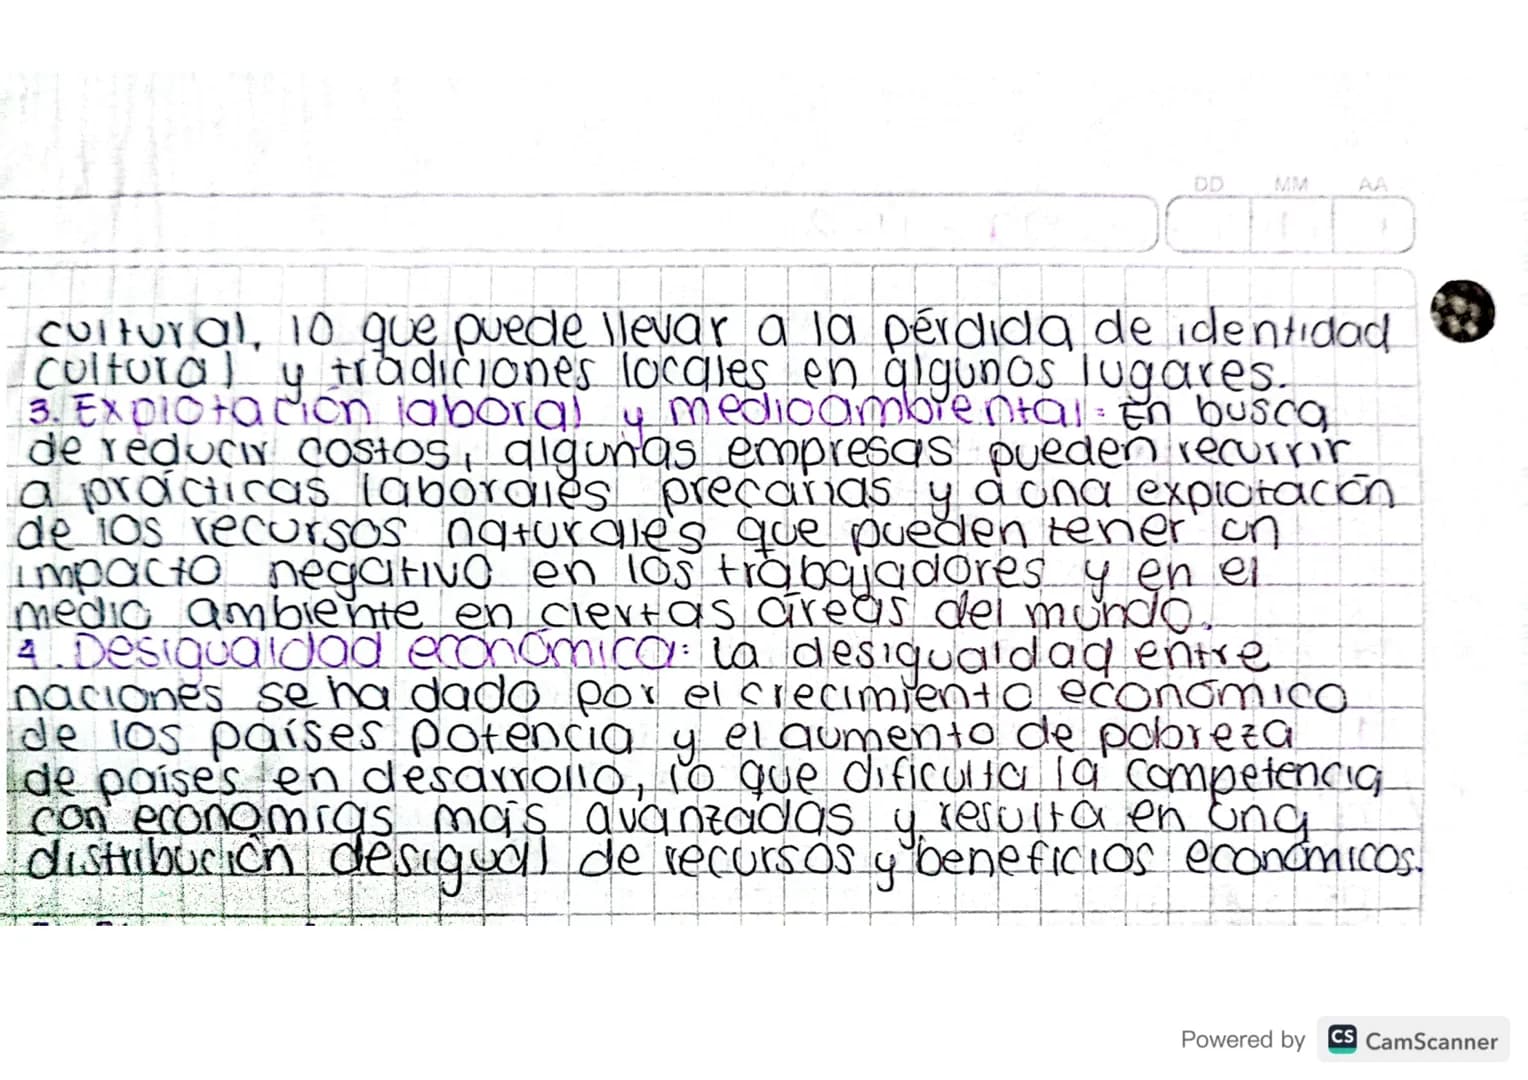 DD MM AA
cultural, lo que puede llevar a la pérdida de identidad
cultural y tradiciones locales en algunos lugares.
3. Explotación laboral y medioambiental: En busca
de reducir costos, algunas empresas pueden recurrir
a prácticas laborales precarias y a una explotación
de los recursos naturales que pueden tener un
impacto negativo en los trabajadores y en el
medio ambiente en ciertas áreas del mundo.
4. Desigualdad económica: la desigualdad entre
naciones se ha dado por el crecimiento económico
de los países potencia y el aumento de pobreza
de países en desarrollo, lo que dificulta la competencia
con economías más avanzadas y resulta en una
distribución desigual de recursos y beneficios económicos.
Powered by CS CamScanner